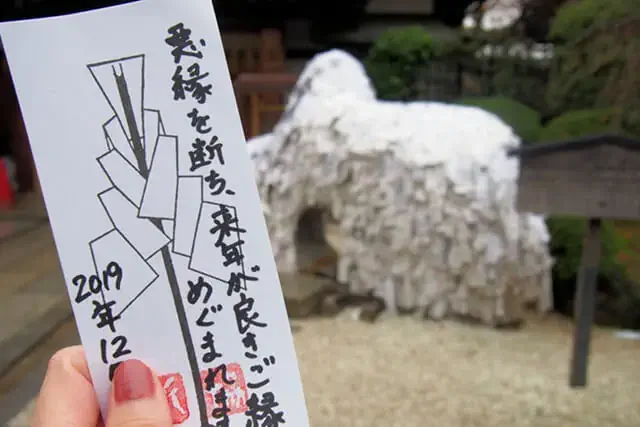 悪縁を断ち、
来年が良きご縁
めぐまれます
2019年12